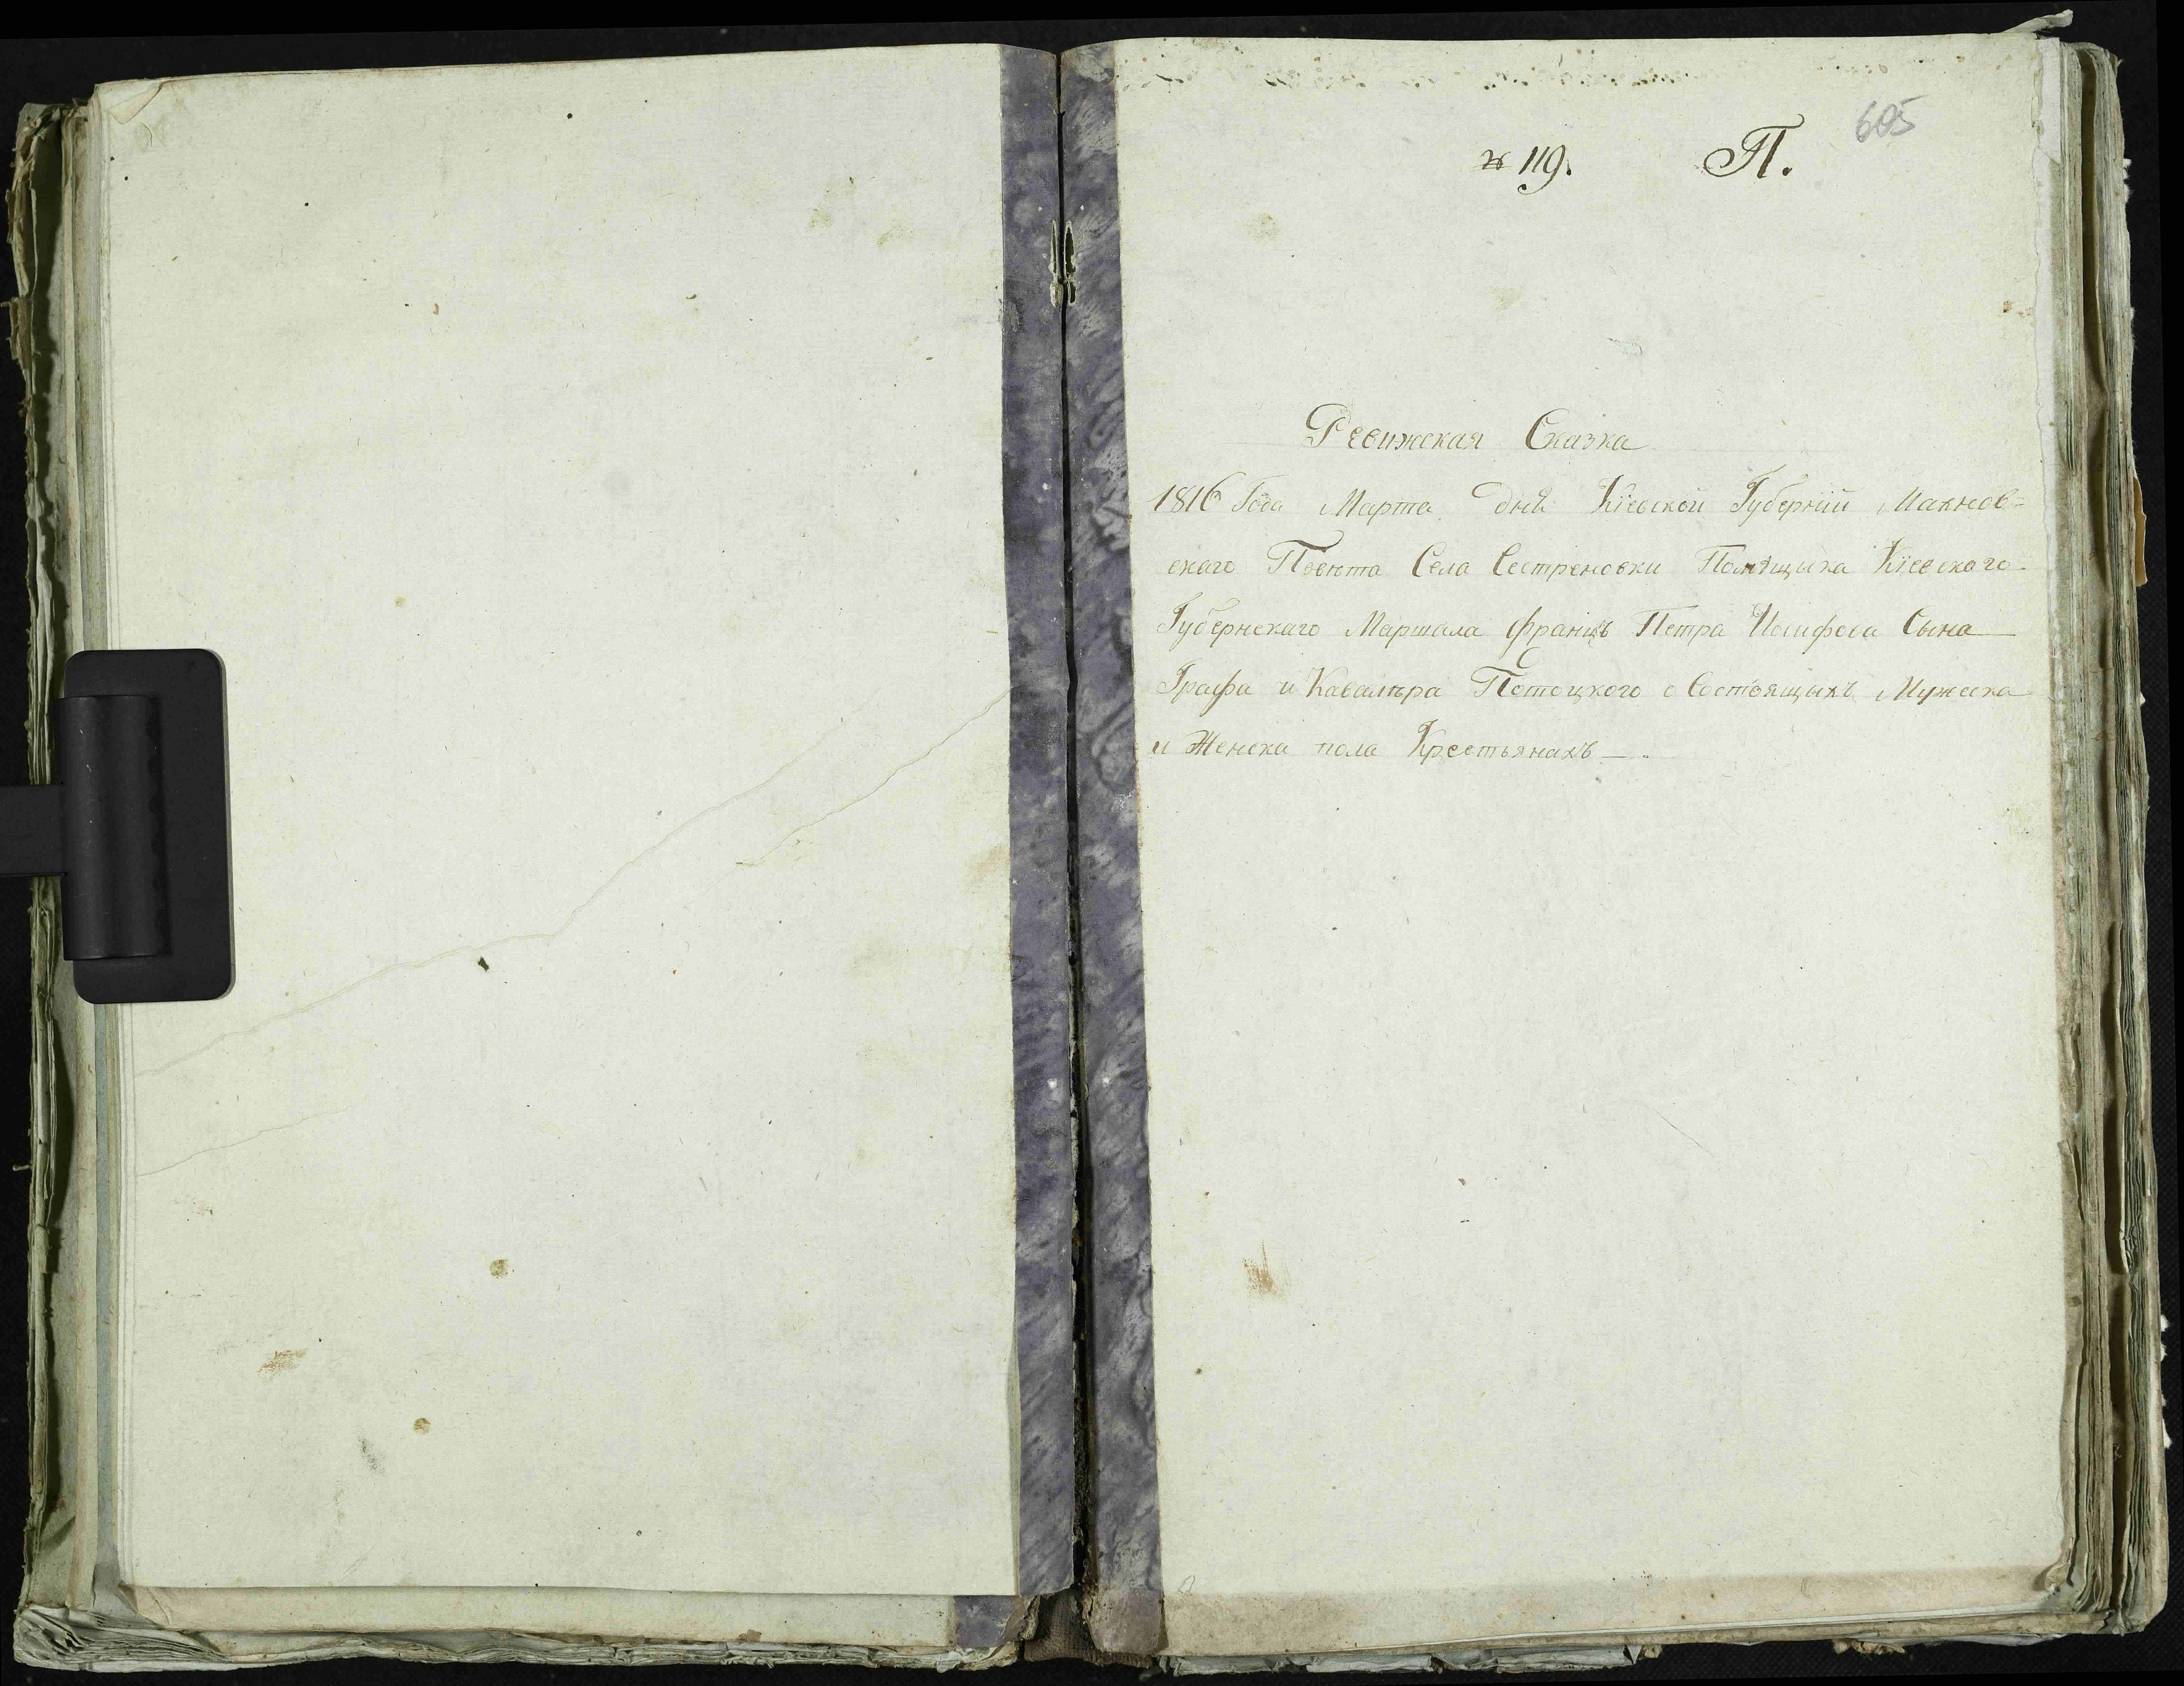 605
№ 119. П.
Ревижская Сказка
1816 Года Марта дня Кіевской Губерніи Махнов=
скаго Повѣта Села Сестреновки Помѣщыка Кіевского
Губернскаго Маршала Францъ Петра Иосифова Сына
Графа и Кавалѣра Потоцкого о Состоящыхъ Мужеска
и Женска пола Крестьянахъ —.